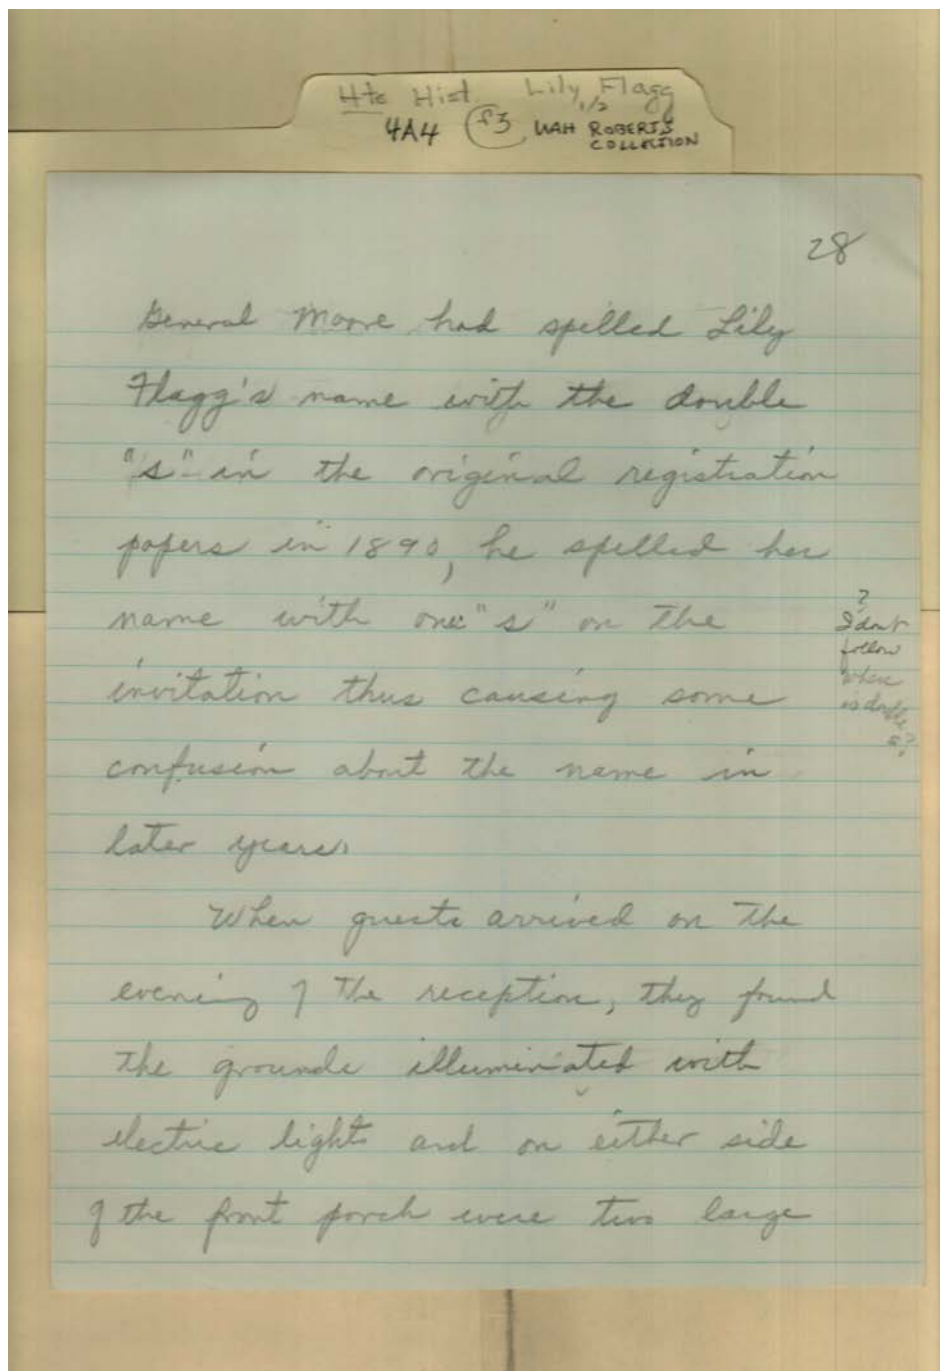 Hts Hist. Lily Flagg
1/2
4A4 f3 UAH ROBERTS
COLLECTION
28
General Moore had spelled Lily
Flagg's name with the double
"s" in the original registration
papers in 1890, he spelled her
name with one "s" on the
invitation thus causing some
confusion about the name in
later years.
When guests arrived on the
evening of the reception, they found
the grounds illuminated with
electric lights and on either side
of the front porch were two large
?
I don't
follow
where
is double
s?